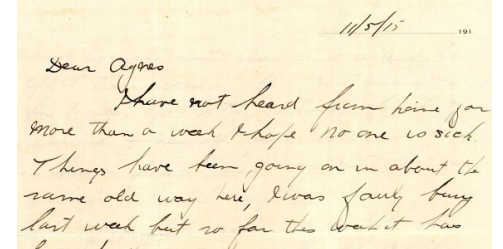 11/5/15 191
Dear Agnes
I have not heard from home for
more than a week & hope no one is sick.
Things have been going on in about the
same old way here, I was fairly busy
last week but so far this week it has